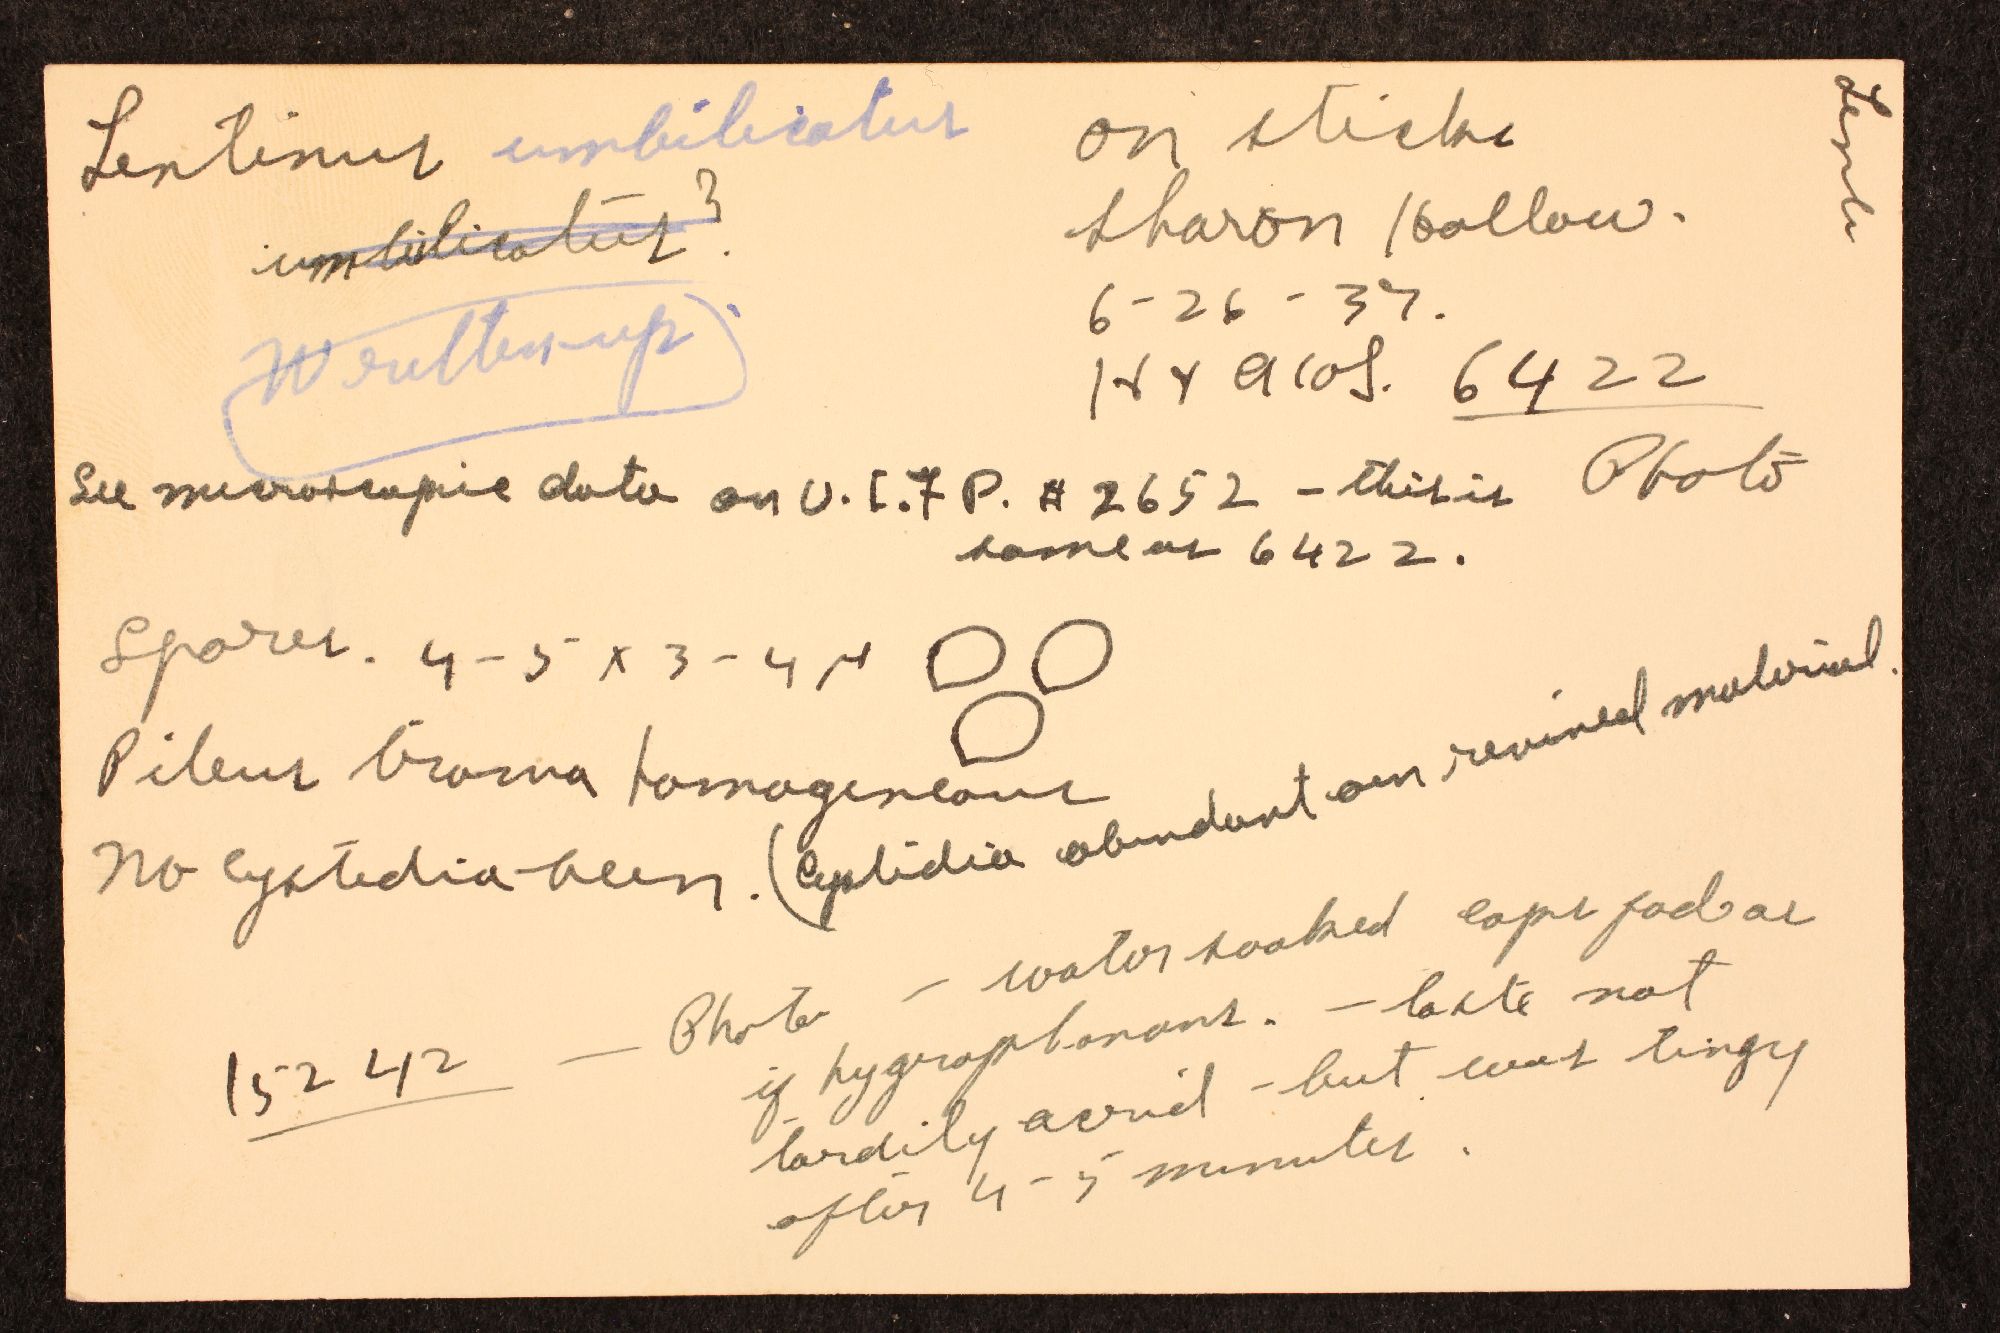 Lentinus umbilicatus
umbilicatus?
Written-up
on sticks
Sharon Hollow.
6-26-37.
H & AHS. 6422
Photo
See microscopic data on U.I.F.P. # 2652 - this is
same as 6422.
Spores. 4-5 x 3-4 µ
Pileus trama homogeneous
No cystidia seen. (Cystidia abundant on revived material.
15242 — Photo — water soaked caps fade as
if hygrophanous. - taste not
tardily acrid - but was tingy
after 4-5 minutes.